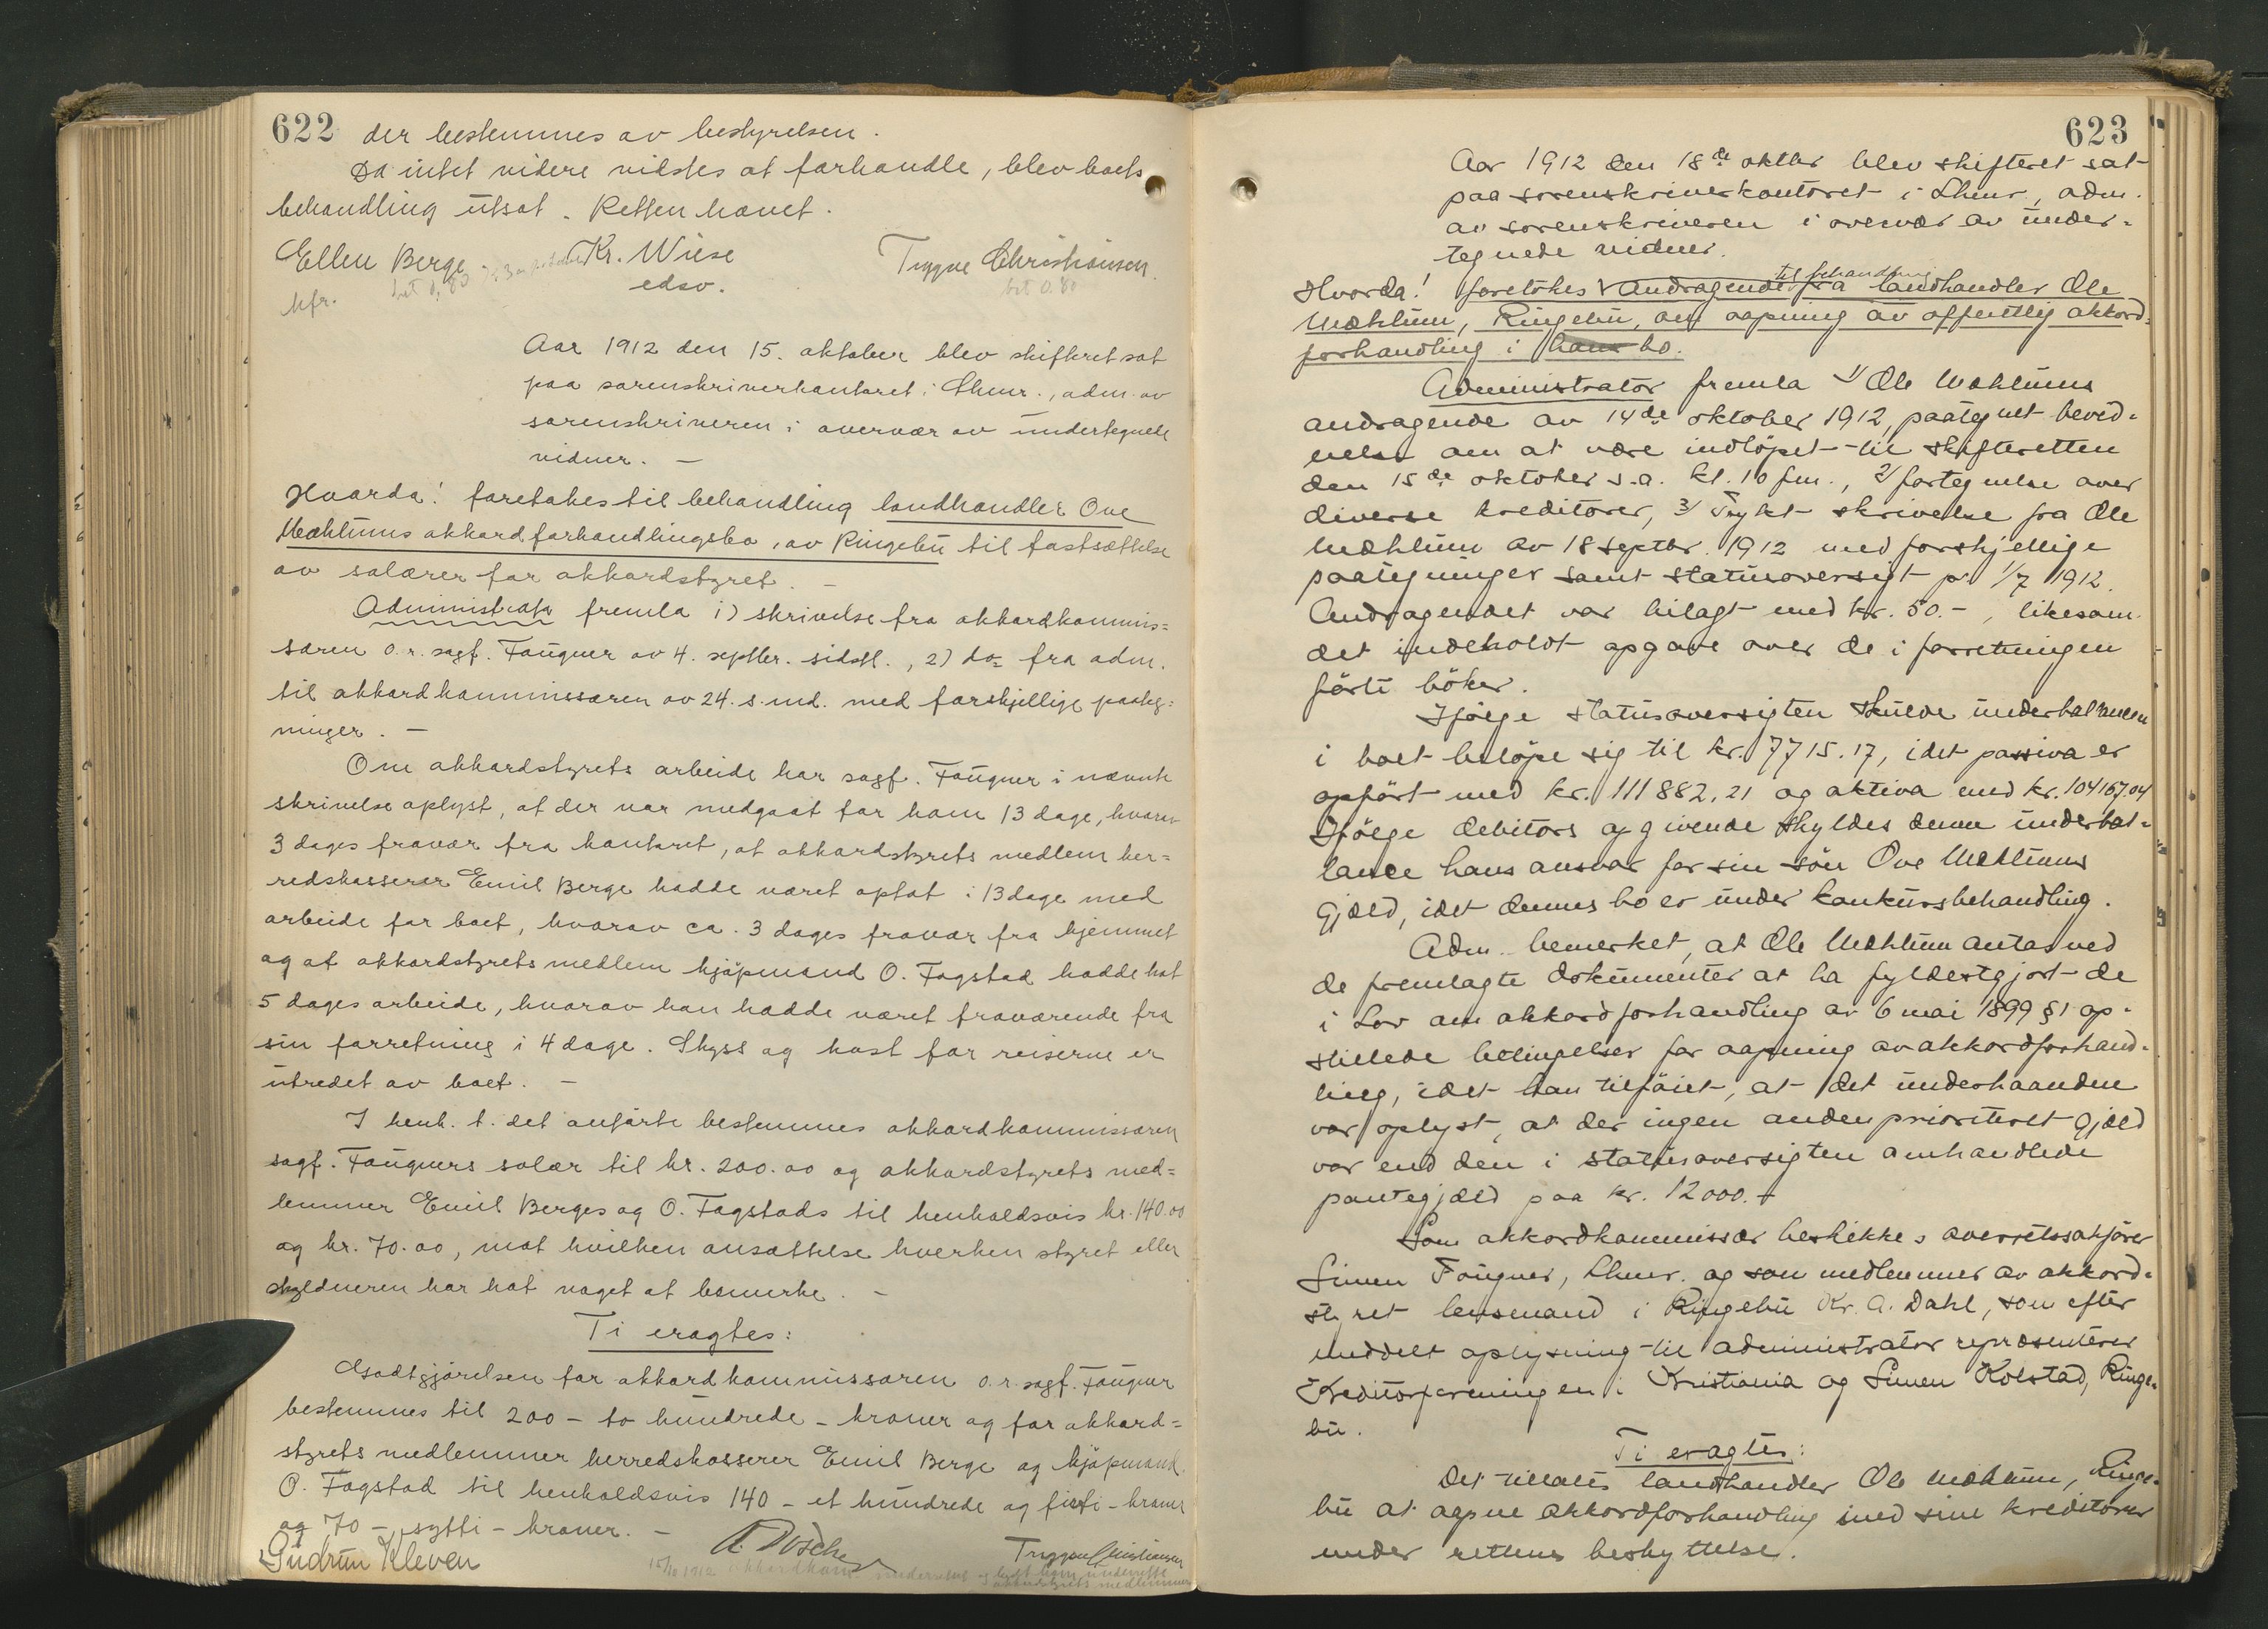 622 der bestemmes av bestyrelsen.
Da intet videre vilstes at forhandle, blev boets
behandling utsat. Retten hævet.
Ellen Berge Kr. Wiese Trygve Christiansen
kfr. edsv.
Aar 1912 den 15. oktober blev skifteret sat
paa sorenskriverkontoret i Lhmr., adm. av
sorenskriveren i overvær av undertegnede
vidner. —
Hvorda! foretokes til behandling landhandler Ove
Mæhlums akkordforhandlingsbo, av Ringebu til fastsættelse
av salærer for akkordstyret. —
Administrator fremla 1) skrivelse fra akkordkommis=
særen o.r.sagf. Fougner av 4. septbr. sidstl., 2) do= fra adm.
til akkordkommissæren av 24. s. md. med forskjellige paateg=
ninger. —
Om akkordstyrets arbeide har sagf. Fougner i nævnte
skrivelse oplyst, at der var medgaat for ham 13 dage, hvorav
3 dages fravær fra kontoret, at akkordstyrets medlem her=
redskasserer Emil Berge hadde været optat i 13 dage med
arbeide for boet, hvorav ca. 3 dages fravær fra hjemmet
og at akkordstyrets medlem kjøpmand O. Fagstad hadde hat
5 dages arbeide, hvorav han hadde været fraværende fra
sin forretning i 4 dage. Skyss og kost for reiserne er
utredet av boet. —
I henh. t. det anførte bestemmes akkordkommissæren
sagf. Fougners salær til kr. 200.00 og akkordstyrets med=
lemmer Emil Berges og O. Fagstads til henholdsvis kr. 140.00
og kr. 70.00, mot hvilken ansættelse hverken styret eller
skyldneren har hat noget at bemerke. —
Ti eragtes:
Godtgjørelsen for akkordkommissæren o.r.sagf. Fougner
bestemmes til 200 — to hundrede — kroner og for akkord=
styrets medlemmer herredskasserer Emil Berge og kjøpmand
O. Fagstad til henholdsvis 140 — et hundrede og firti — kroner
og 70 — sytti — kroner. —
Gudrun Kleven Trygve Christiansen
15/10 1912 akkordkom. underrettet
akkordstyrets medlemmer
623
Aar 1912 den 18de oktbr blev skifteret sat
paa sorenskriverkontoret i Lhmr, adm.
av sorenskriveren i overvær av under=
tegnede vidner.
Hvorda! foretokes til behandling andragende fra landhandler Ole
Mæhlum, Ringebu, om aapning av offentlig akkord=
forhandling i hans bo.
Administrator fremla 1/ Ole Mæhlums
andragende av 14de oktober 1912, paategnet bevid=
nelse om at være indløpet til skifteretten
den 15de oktober s.a. kl. 10 fm., 2/ fortegnelse over
diverse kreditorer, 3/ Trykt skrivelse fra Ole
Mæhlum av 18 septbr. 1912 med forskjellige
paategninger samt statusoversigt pr. 1/7 1912.
Andragendet var bilagt med kr. 50.-, likesom
det indeholdt opgave over de i forretningen
førte bøker.
Ifølge statusoversigten skulde underbalancen
i boet beløpe sig til kr. 7715.17, idet passiva er
opført med kr. 111882,21 og aktiva med kr. 104167.04
Ifølge debitors opgivende skyldes denne underbal=
lance hans ansvar for sin søn Ove Mæhlums
gjæld, idet dennes bo er under konkursbehandling.
Adm. bemerket, at Ole Mæhlum antas ved
de fremlagte dokumenter at ha fyldestgjort de
i Lov om akkordforhandling av 6 mai 1899 § 1 op=
stillede betingelser for aapning av akkordforhand=
ling, idet han tilføiet, at det underhaanden
var oplyst, at der ingen anden prioritert gjæld
var end den i statusoversigten omhandlede
pantegjæld paa kr. 12000.-
Som akkordkommissær beskikkes overretssakfører
Simen Fougner, Lhmr. og som medlemmer av akkord=
styret lensmand i Ringebu Kr. A. Dahl, som efter
meddelt oplysning til administrator repræsenterer
Kreditorforeningen i Kristiania og Simen Kolstad, Ringe=
bu.
Ti eragtes:
Det tillates landhandler Ole Mæhlum, Ringe=
bu at aapne akkordforhandling med sine kreditorer
under rettens beskyttelse.